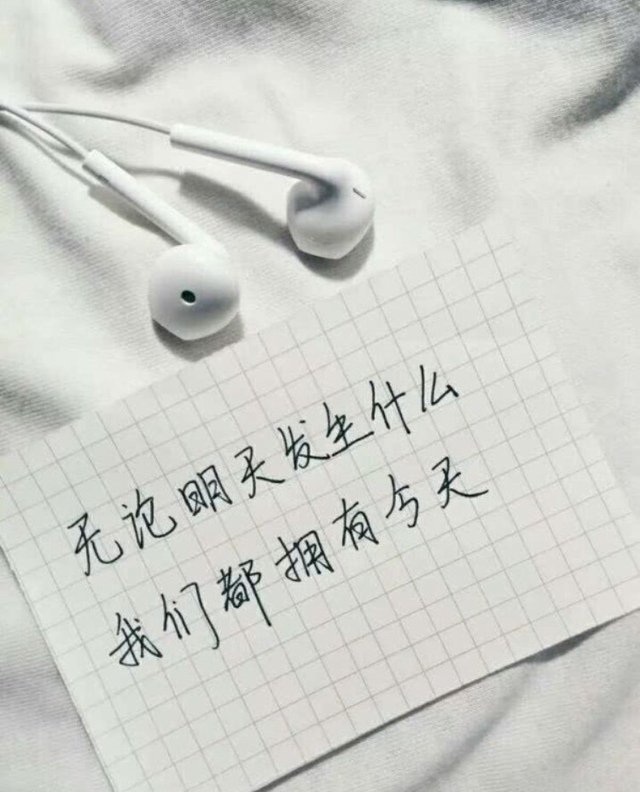 无论明天发生什么
我们都拥有今天